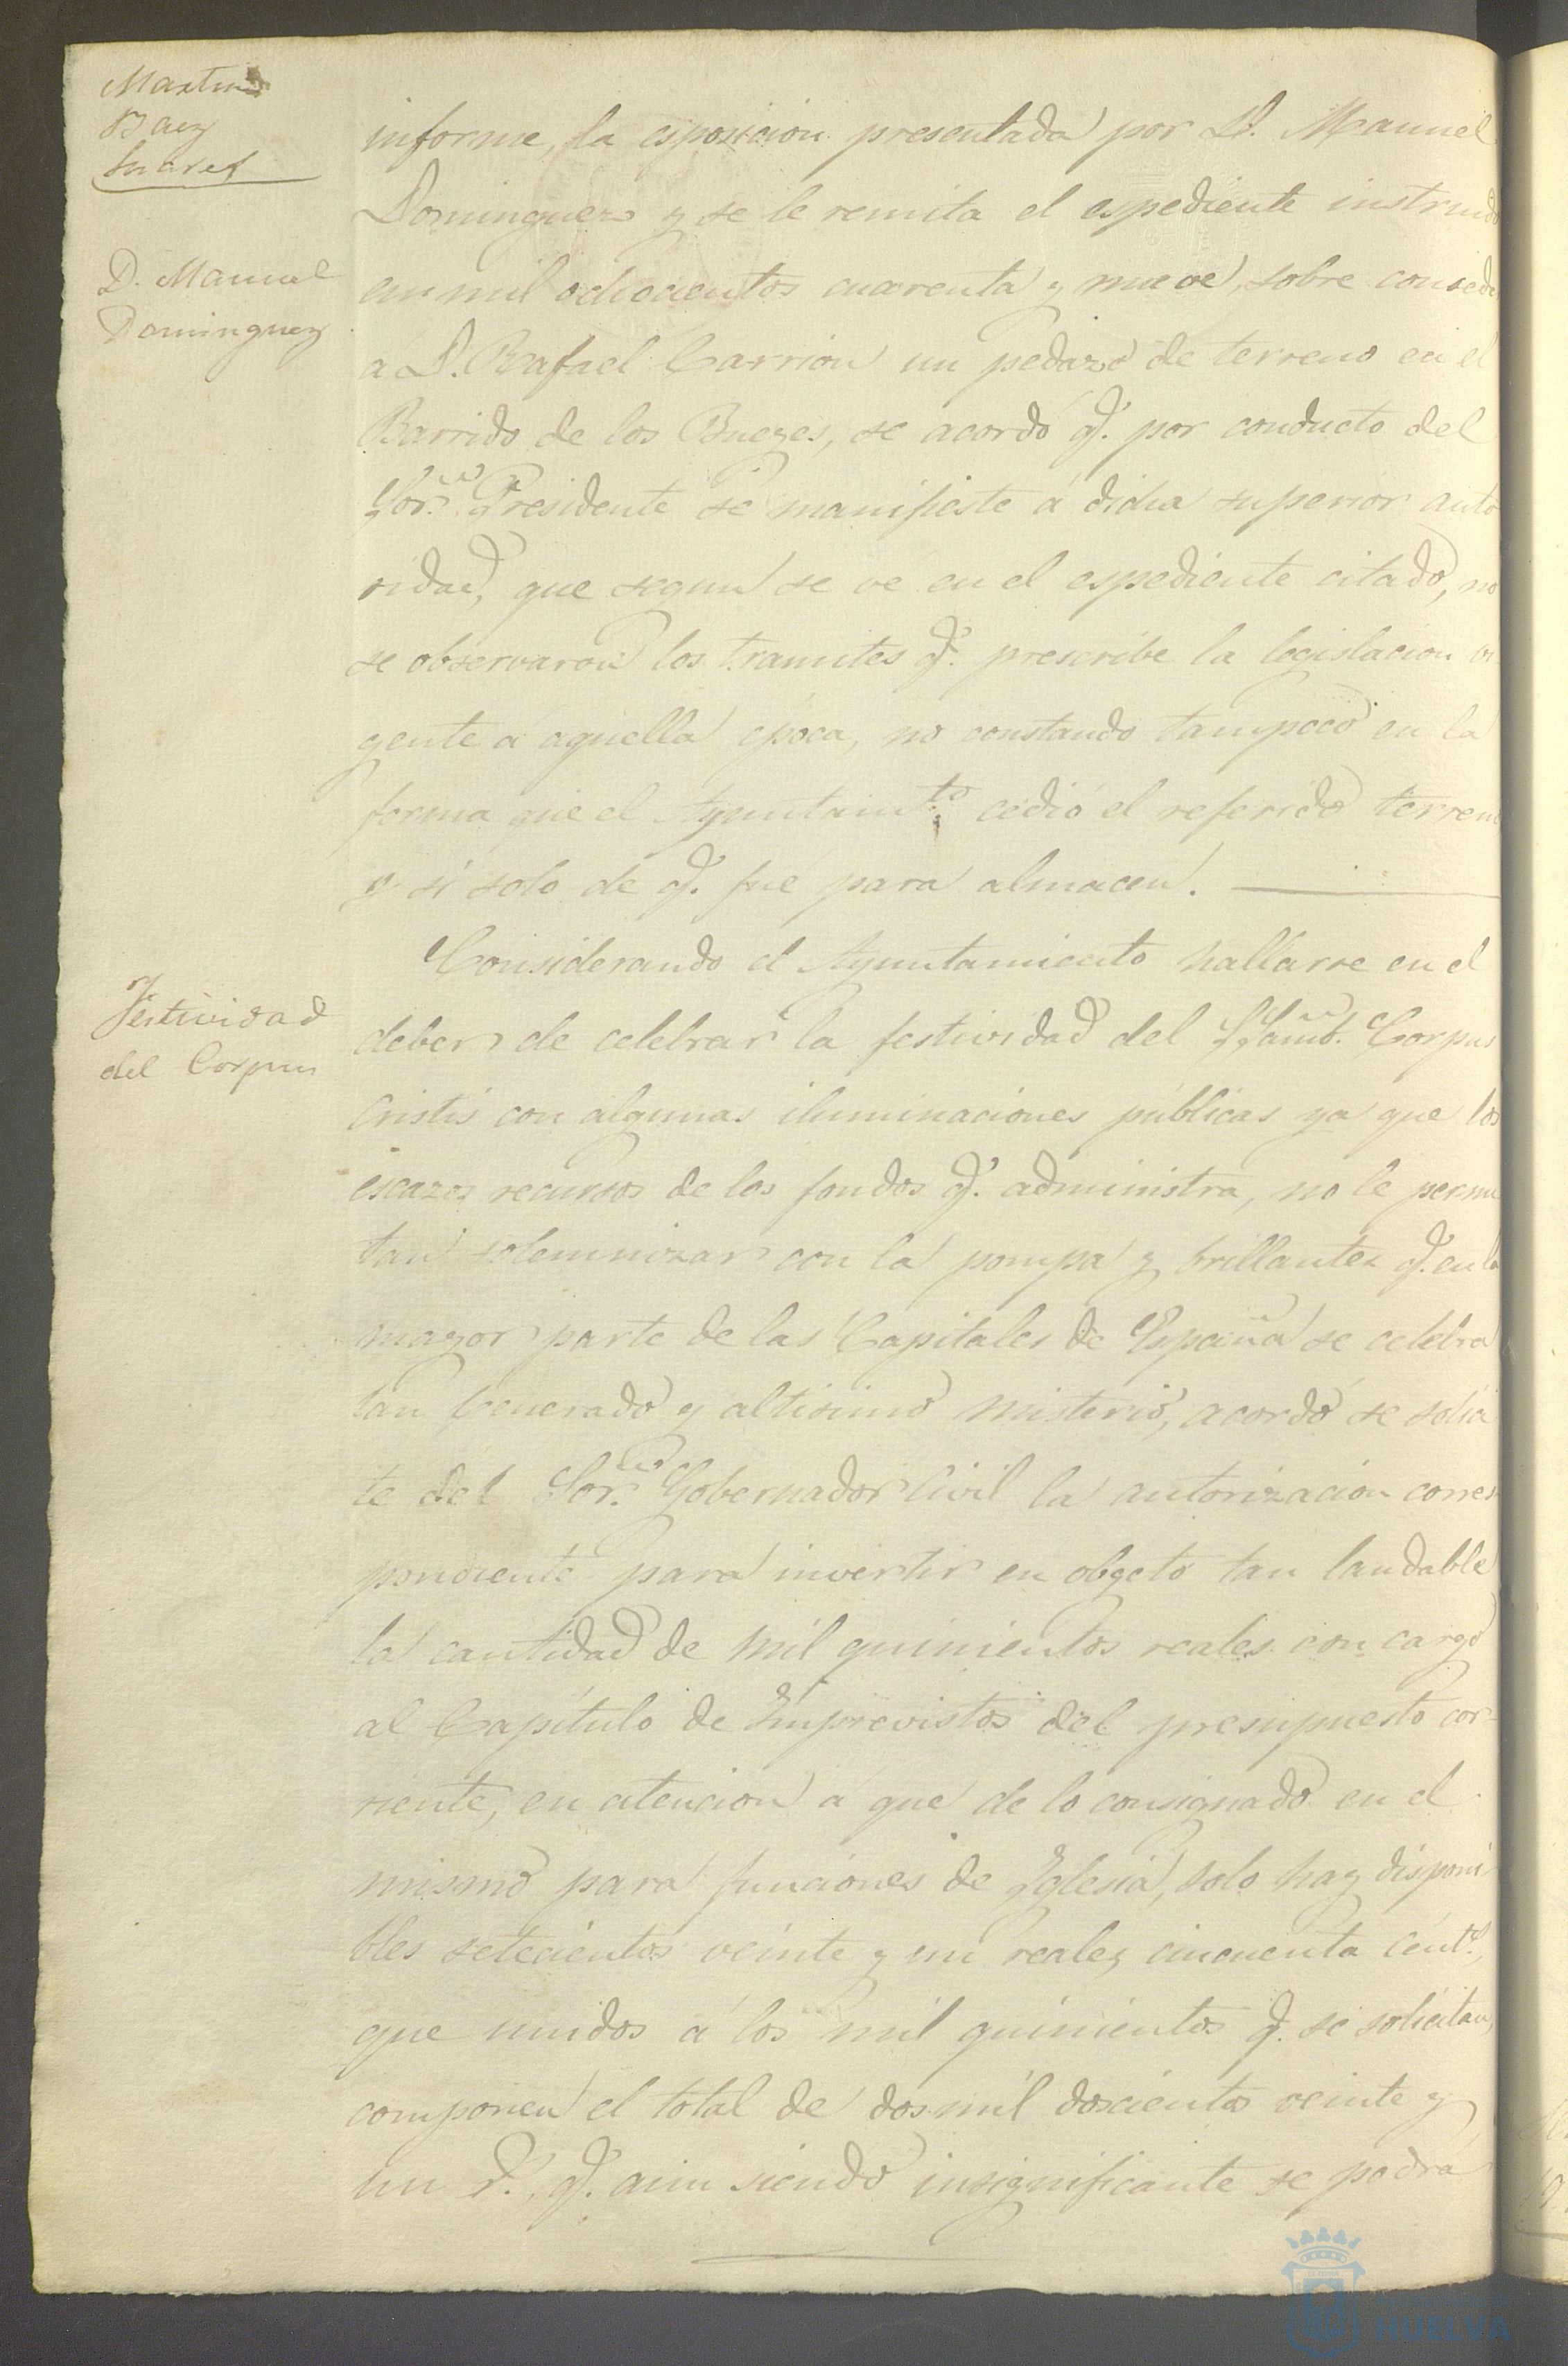 Martin
Baez
Suarez
informe, la esposicion presentada por D. Manuel
Dominguez y se le remita el espediente instruido
D. Manuel
Dominguez
en mil ochocientos cuarenta y nueve, sobre conceder
a D. Rafael Carrion un pedazo de terreno en el
Barrido de los Bueyes, se acordó q.e por conducto del
Sor. Presidente se manifieste á dicha superior auto
ridad, que segun se ve en el espediente citado, no
se observaron los tramites q.e prescribe la legislacion vi
gente á aquella época, no constando tampoco en la
forma que el Ayuntam.to cedió el referido terreno
y si solo de q.e fué para almacen.
Festividad
del Corpus
Considerando el Ayuntamiento hallarse en el
deber de celebrar la festividad del Corpus
Cristis con algunas iluminaciones públicas ya que los
escazos recursos de los fondos q.e administra, no le permi
tan solemnizar con la pompa y brillantez q.e en la
mayor parte de las Capitales de España se celebra
tan Venerado y altisimo misterio, acordó se solici
te del Sor. Gobernador Civil la autorizacion corres
pondiente para invertir en obgeto tan laudable
la cantidad de mil quinientos reales con cargo
al Capítulo de Imprevistos del presupuesto cor-
riente, en atencion á que de lo consignado en el
mismo para funciones de Iglesia, solo hay disponi
bles setecientos veinte y un reales cincuenta cént.s,
que unidos á los mil quinientos q. se solicitan,
componen el total de dos mil doscientos veinte y
un r.s, q.e aun siendo insignificante se podrá
HUELVA